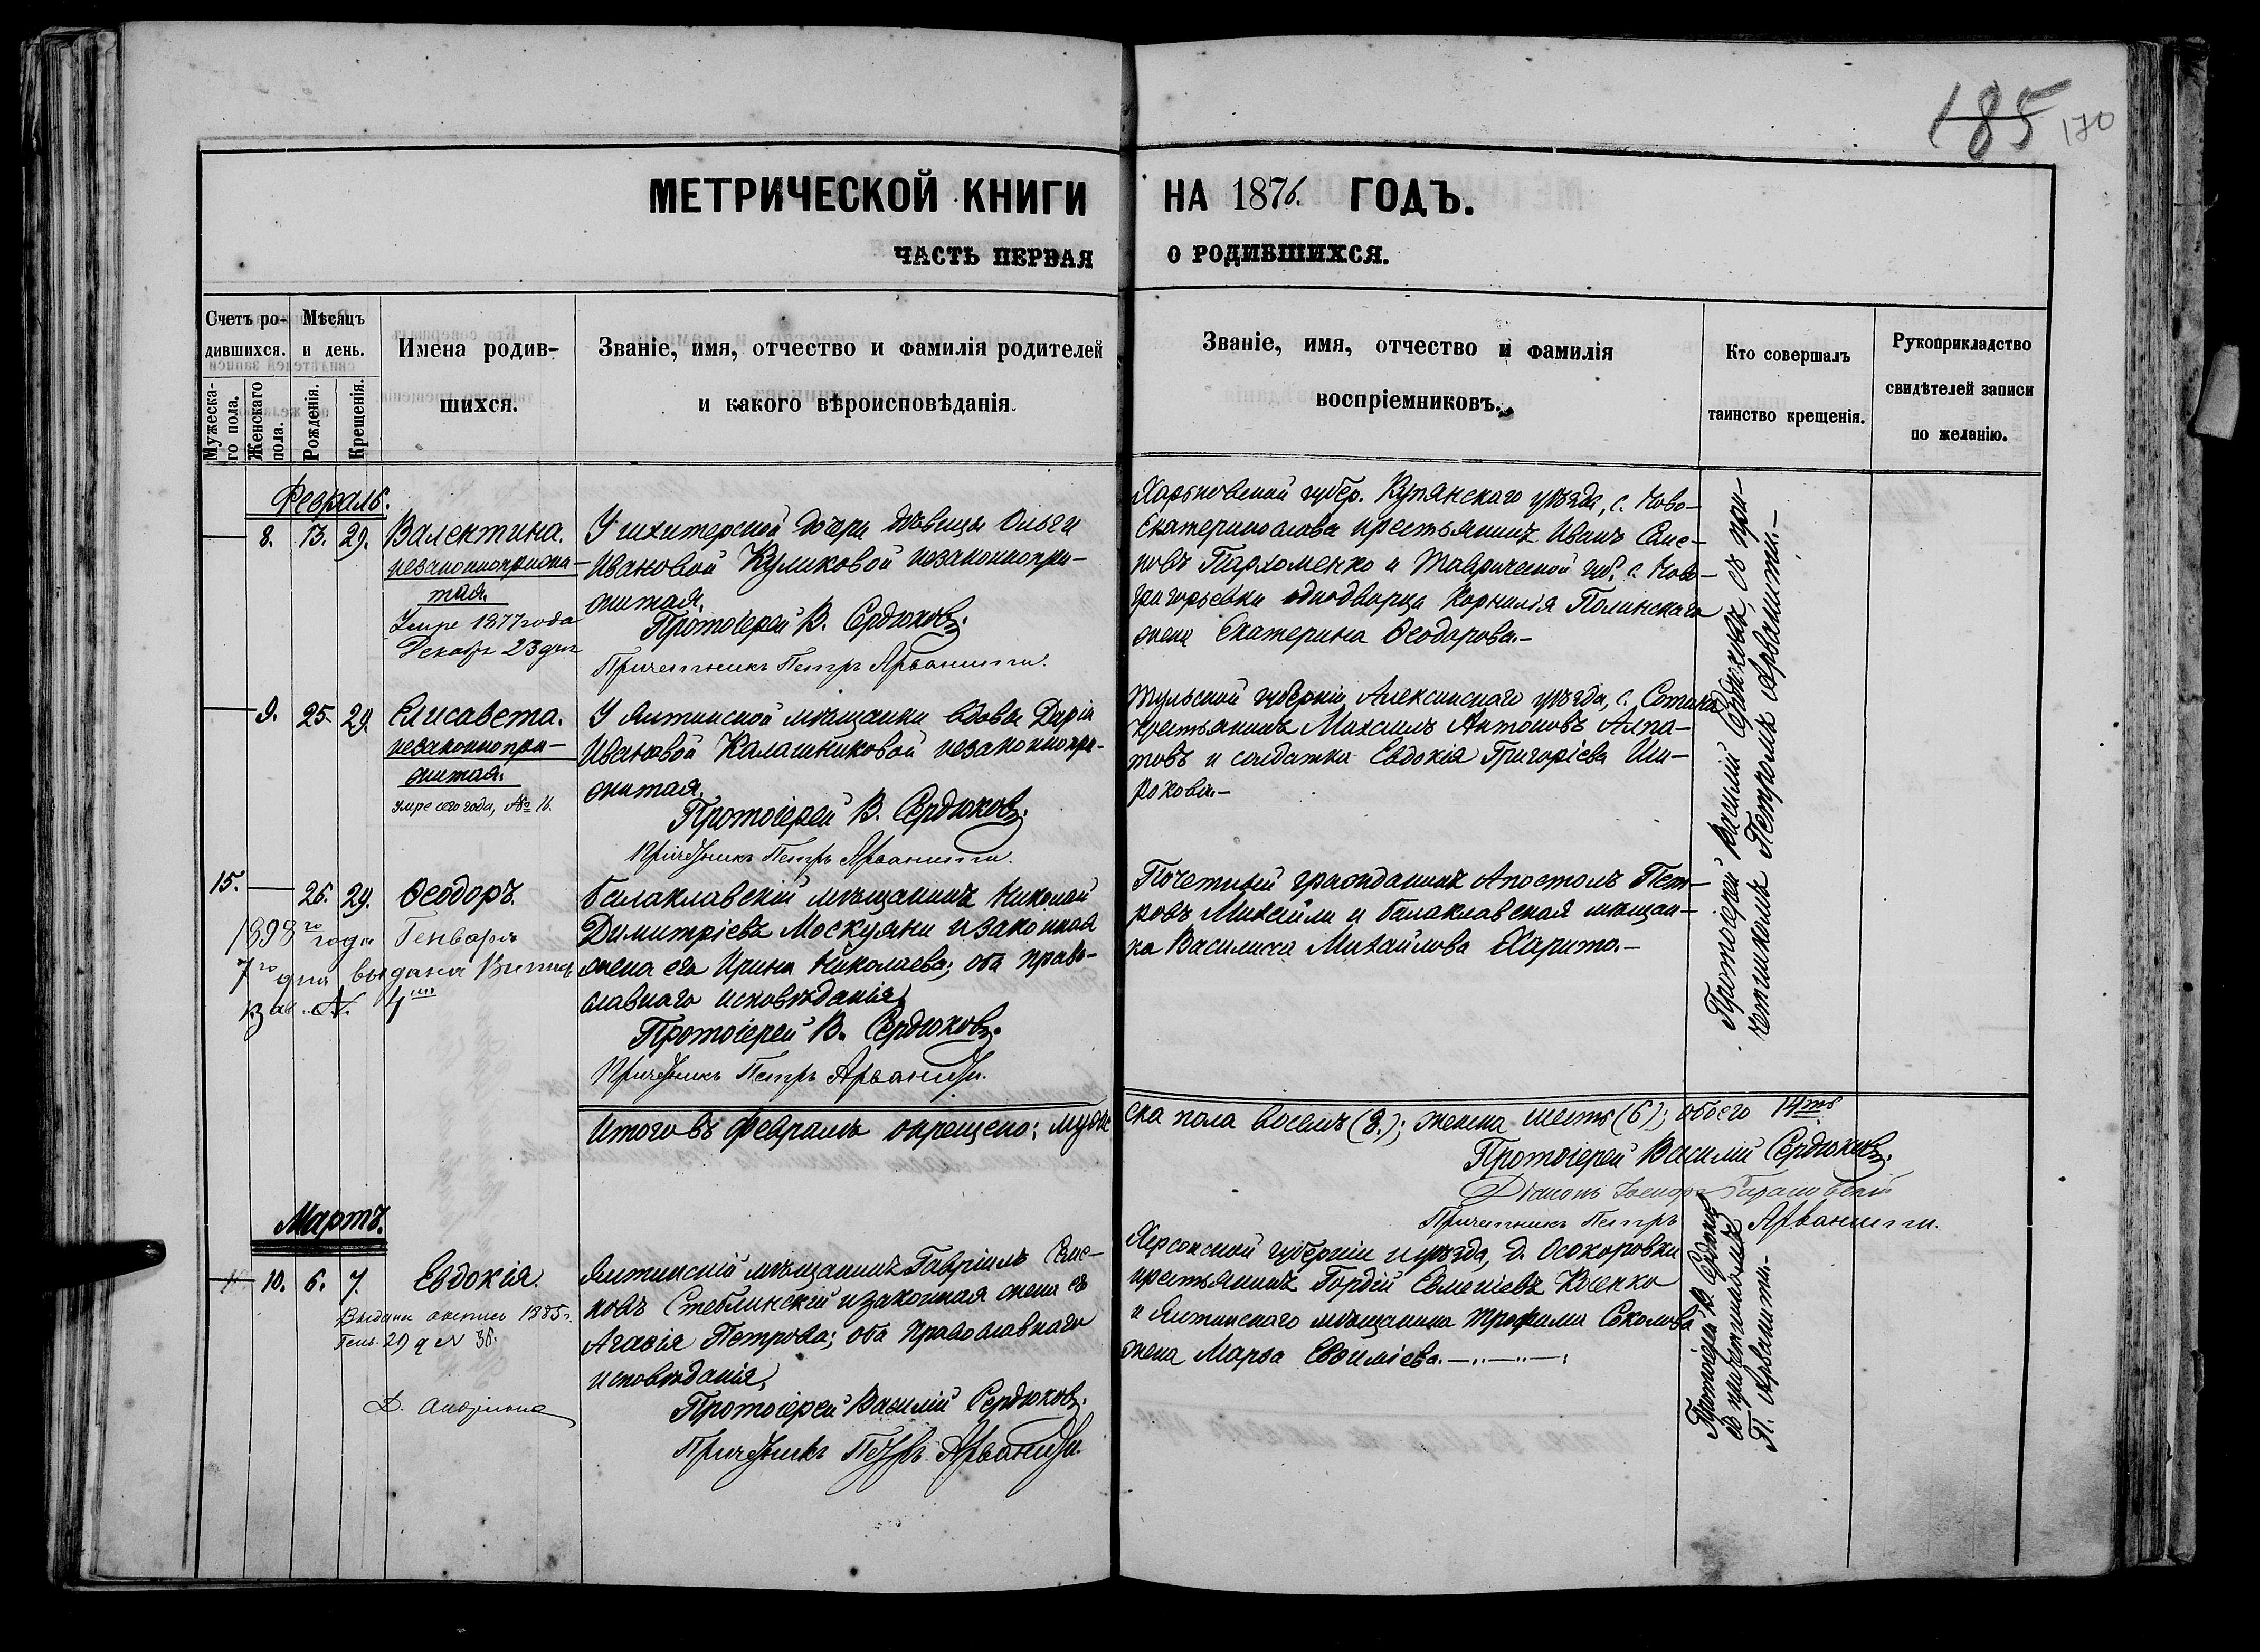 185 170
МЕТРИЧЕСКОЙ КНИГИ НА 1876. ГОДЪ.
ЧАСТЬ ПЕРВАЯ О РОДИВШИХСЯ.
Счетъ родившихся.
Мужескаго пола.
Женскаго пола.
Мѣсяцъ и день.
Рожденія.
Крещенія.
Имена родившихся.
Званіе, имя, отчество и фамилія родителей
и какого вѣроисповѣданія.
Званіе, имя, отчество и фамилія
воспріемниковъ.
Кто совершалъ
таинство крещенія.
Рукоприкладство
свидѣтелей записи
по желанію.
Февраль.
8. 13. 29. Валентина.
незаконнорожен-
ная.
Умре 1877 года
Декабр 23 дня
дочери дѣвицы Ольги
Ивановой Куликовой незаконнопри-
житая.
Протоіерей В. Сердюковъ.
Причетникъ Петръ Арванитти.
Харьковской губер. Купянскаго уѣзда, с. Ново-
Екатеринослава крестьянинъ Иванъ Семе-
новъ Пархоменко и Таврической губ. с. Ново-
григорьевки однодворца Корнилія Полинскаго
жена Екатерина Ѳеодорова.-
Протоіерей Василій Сердюковъ, съ при-
четникомъ Петромъ Арванитти.-
9. 25. 29. Елисавета.
незаконнопри-
житая.
Умре сего года, № 16.
У Ялтинской мѣщанки вдовы Даріи
Ивановой Калашниковой незаконнопри-
житая.
Протоіерей В. Сердюковъ.
Причетникъ Петръ Арванитти.
Тульской губерніи Алексинскаго уѣзда, с.
крестьянинъ Михаилъ Антоновъ Алпа-
товъ и солдатка Евдокія Григоріева Ши-
рокова.-
15. 26. 29. Ѳеодоръ.
1898го года Генваря
7го дня выдана Выпись
за № 4
Балаклавскій мѣщанинъ Николай
Димитріевъ Москуяни и законная
жена его Ирина Николаева; оба право-
славнаго исповѣданія.
Протоіерей В. Сердюковъ.
Причетникъ Петръ Арванитти.
Почетный гражданинъ Апостолъ Пет-
ровъ Михайли и балаклавская мѣщан-
ка Василиса Михайлова Харито.-
Итого въ Февралѣ окрещено: муже
ска пола восемь (8.); женска шесть (6); обоего 14ть
Протоіерей Василій Сердюковъ.
Діаконъ
Причетникъ Петръ Арванитти.
Мартъ.
10. 6. 7. Евдокія.
Выдана выпись 1885 г.
Генв. 29 д № 36.
Ялтинскій мѣщанинъ Гавріилъ Семе-
новъ Стеблинскій и законная жена его
Агафія Петрова; оба православнаго
исповѣданія.
Протоіерей Василій Сердюковъ.
Причетникъ Петръ Арванитти.
Херсонской губерніи и уѣзда, д. Осокоровки
крестьянинъ Гордій Евменіевъ Косенко
и Ялтинскаго мѣщанина Трофима Соколова
жена Марфа Евфиміева.-
Протоіерей В. Сердюковъ
съ причетникомъ
П. Арванитти.-